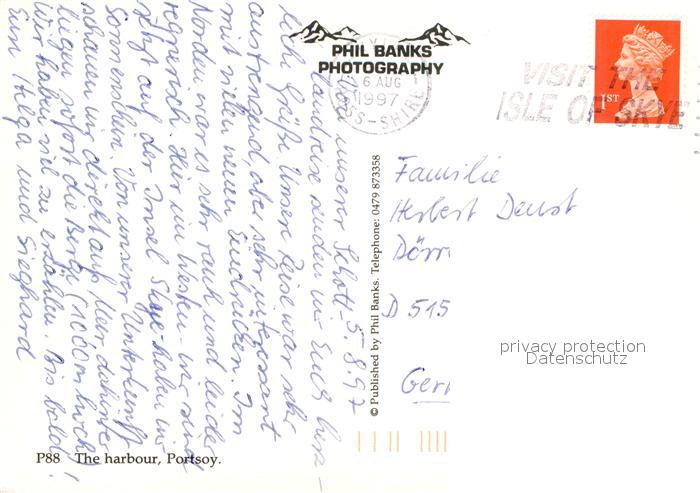 PHIL BANKS
PHOTOGRAPHY
6 AUG
1997
ROSS-SHIRE
VISIT THE
ISLE OF SKYE
1ST
5.8.97
unserer Schott-
landreise senden wir Euch herz-
liche Grüße. Unsere Reise war sehr
anstrengend, aber sehr interessant
mit vielen neuen Eindrücken. Im
Norden war es sehr rauh und leider
regnerisch. Hier im Westen - wir sind
jetzt auf der Insel Skye haben wir
Sonnenschein. Von unserer Unterkunft
schauen wir direkt aufs Meer dahinter
liegen sofort die Berge (1000m hoch)
Wir haben viel zu erzählen. Bis bald!
Eure Helga und Sieghard
© Published by Phil Banks. Telephone: 0479 873358
Familie
Herbert Denst
Dörr
D 515
Ger
privacy protection
Datenschutz
P88 The harbour, Portsoy.